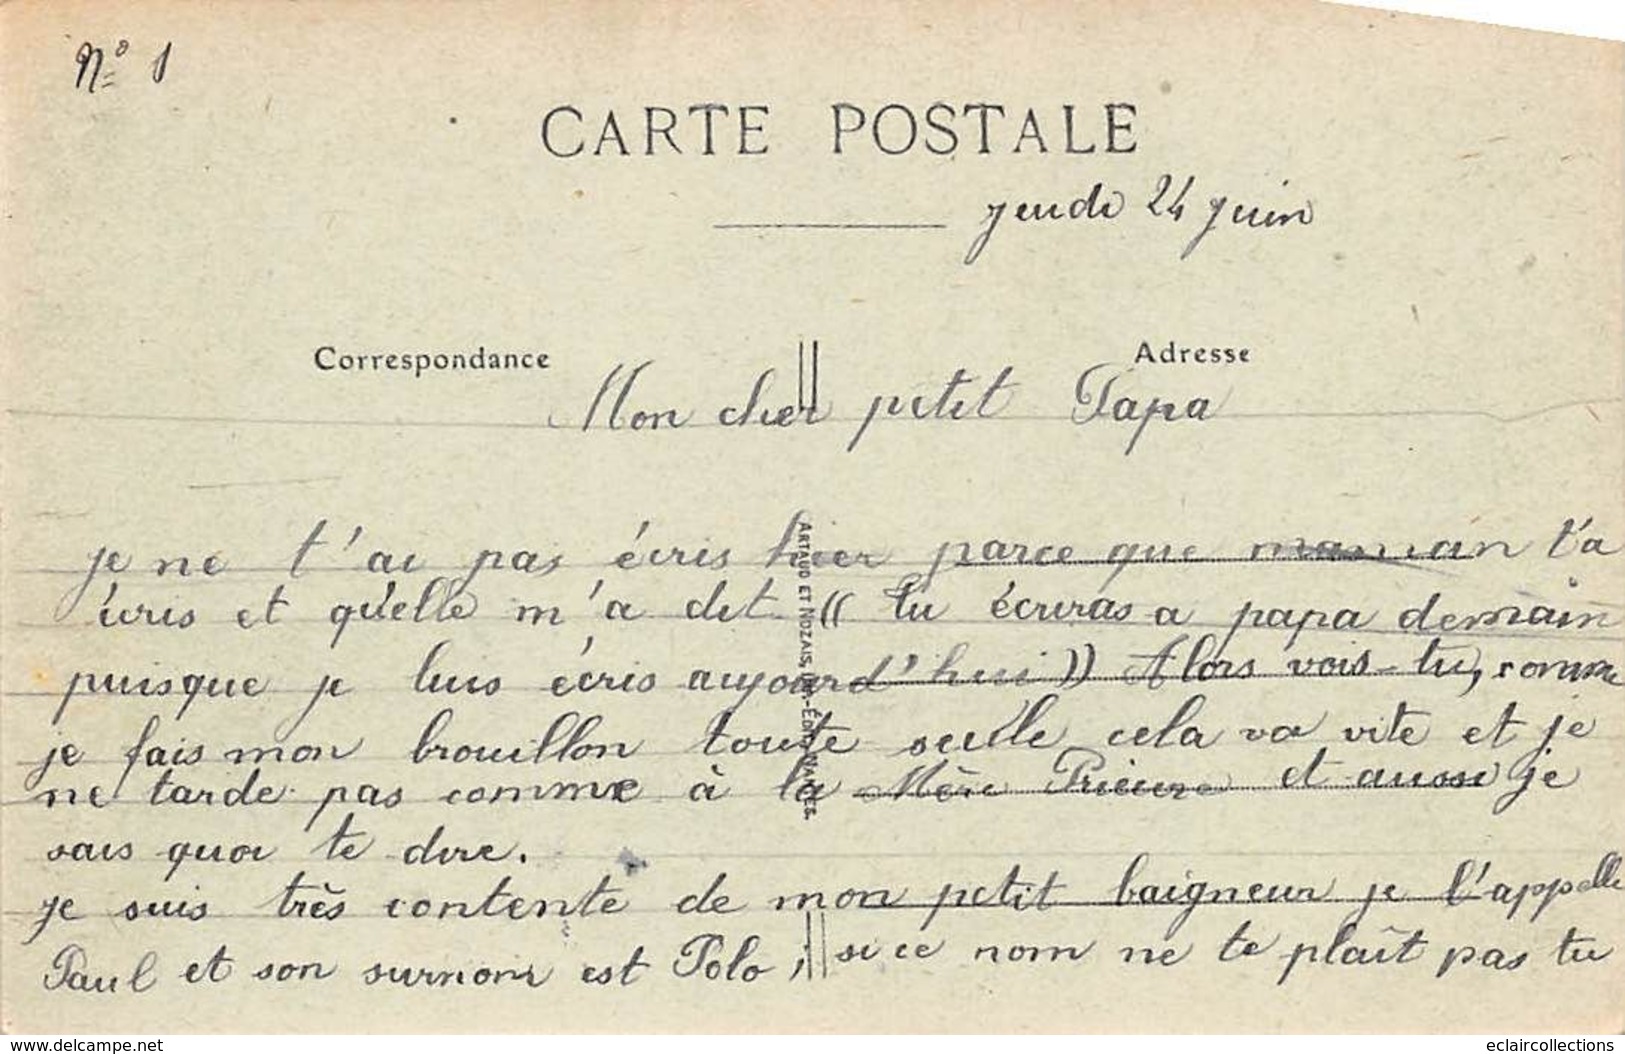 Nº 1
CARTE POSTALE
jeudi 24 juin
Correspondance
Adresse
Mon cher petit Papa
je ne t'ai pas écris hier parce que maman t'a
écris et qu'elle m'a dit (( Tu écriras a papa demain
puisque je luis écris aujourd'hui )) Alors vois-tu, comme
je fais mon brouillon toute seulle cela va vite et je
ne tarde pas comme à la Mère Prieure et aussi je
sais quoi te dire.
je suis très contente de mon petit baigneur je l'appelle
Paul et son surnom est Polo ; si ce nom ne te plaît pas tu
ARTAUD ET NOZAIS, NANTES.
delcampe.net
eclaircollections